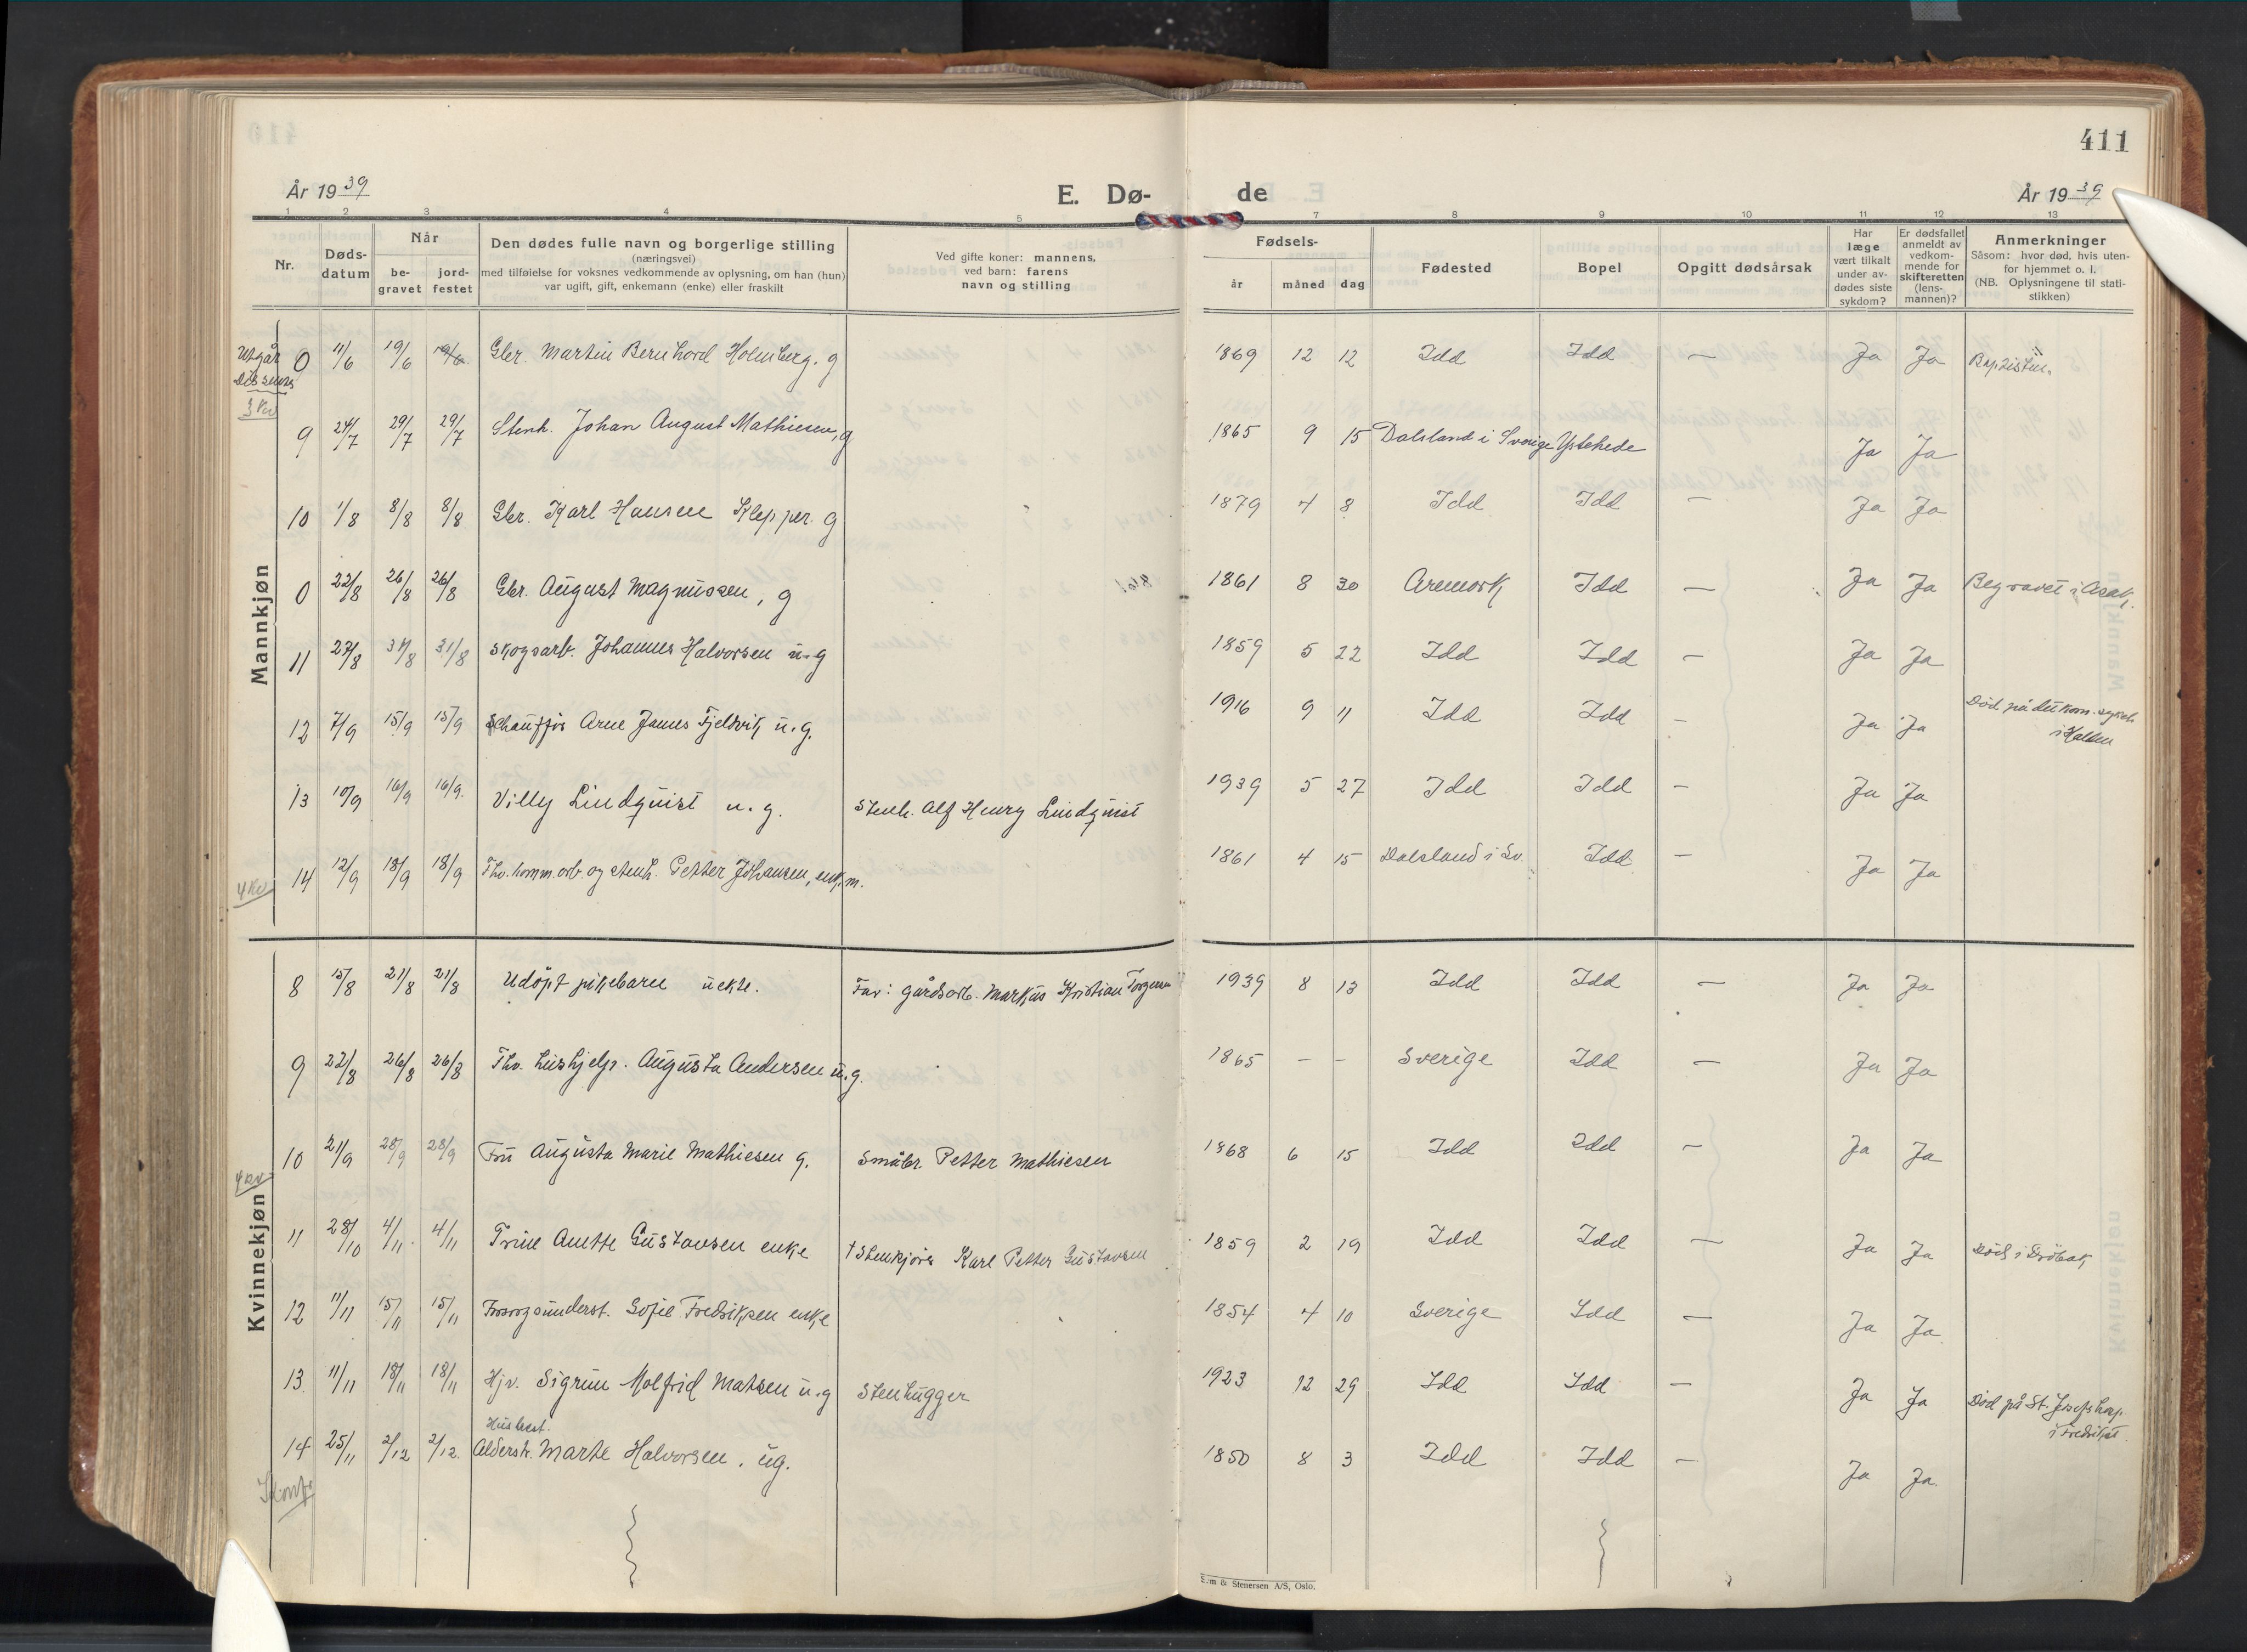 411
År 1939
E. Dø-
de
År 1939
1 2 3 4 5 7 8 9 10 11 12 13
Nr.
Døds-
datum
Når
be-
gravet
jord-
festet
Den dødes fulle navn og borgerlige stilling
(næringsvei)
med tilføielse for voksnes vedkommende av oplysning, om han (hun)
var ugift, gift, enkemann (enke) eller fraskilt
Ved gifte koner: mannens,
ved barn: farens
navn og stilling
Fødsels-
år måned dag
Fødested
Bopel
Opgitt dødsårsak
Har
læge
vært tilkalt
under av-
dødes siste
sykdom?
Er dødsfallet
anmeldt av
vedkom-
mende for
skifteretten
(lens-
mannen)?
Anmerkninger
Såsom: hvor død, hvis uten-
for hjemmet o. l.
(NB. Oplysningene til stati-
stikken)
Mannkjøn
Utgår
0 11/6 19/6 19/6 Gbr. Martin Bernhard Holmberg. g 1869 12 12 Idd Idd — Ja Ja
3 Kv
9 24/7 29/7 29/7 Stenh. Johan August Mathiesen, g 1865 9 15 Dalsland i Sverige Ystehede Ja Ja
10 1/8 8/8 8/8 Gbr. Karl Hansen Klepper. g 1879 4 8 Idd Idd — Ja Ja
0 22/8 26/8 26/8 Gbr. August Magnussen, g 1861 8 30 Aremark Idd — Ja Ja Begravet i Asak.
11 27/8 31/8 31/8 Skogsarb. Johannes Halvorsen u.g 1859 5 22 Idd Idd — Ja Ja
12 7/9 15/9 15/9 Schauffør Arne James Fjeldvik u.g. 1916 9 11 Idd Idd — Ja Ja Død på det kom. sykeh
i Halden
13 10/9 16/9 16/9. Villy Lindquist u.g. Stenh. Alf Henry Lindquist 1939 5 27 Idd Idd — Ja Ja
4 Kv 14 12/9 18/9 18/9 Fhv. komm.arb. og stenh. Petter Johansen, enk.m. 1861 4 15 Dalsland i Sv. Idd — Ja Ja
Kvinnekjøn
8 15/8 21/8 21/8 Udøpt pikebarn uekte. Far: gårdsarb. Markus Kristian 1939 8 13 Idd Idd — Ja Ja
9 22/8 26/8 26/8 Fhv. hushjelp. Augusta Andersen u.g. 1865 — — Sverige Idd — Ja Ja
10 21/9 28/9 28/9 Fru Augusta Marie Mathiesen g. Småbr. Petter Mathiesen 1868 6 15 Idd Idd — Ja Ja
4 Kv
11 28/10 4/11 4/11 Trine Anette Gustavsen enke † Stenkjører Karl Petter Gustavsen 1859 2 19 Idd Idd — Ja Ja Død i Drøbak
12 11/11 15/11 15/11 Forsorgsunderst. Sofie Fredriksen enke 1854 4 10 Sverige Idd — Ja Ja
13. 11/11 18/11 18/11 Hjv. Sigrun Molfrid Matsen u.g Stenhugger 1923 12 29 Idd Idd — Ja Ja Død på St. Josefs hosp.
i Fredrikst.
14 25/11 2/12 2/12. Alderstr. Marte Halvorsen. ug. 1850 8 3 Idd Idd — Ja Ja.
& Stenersen A/S, Oslo.